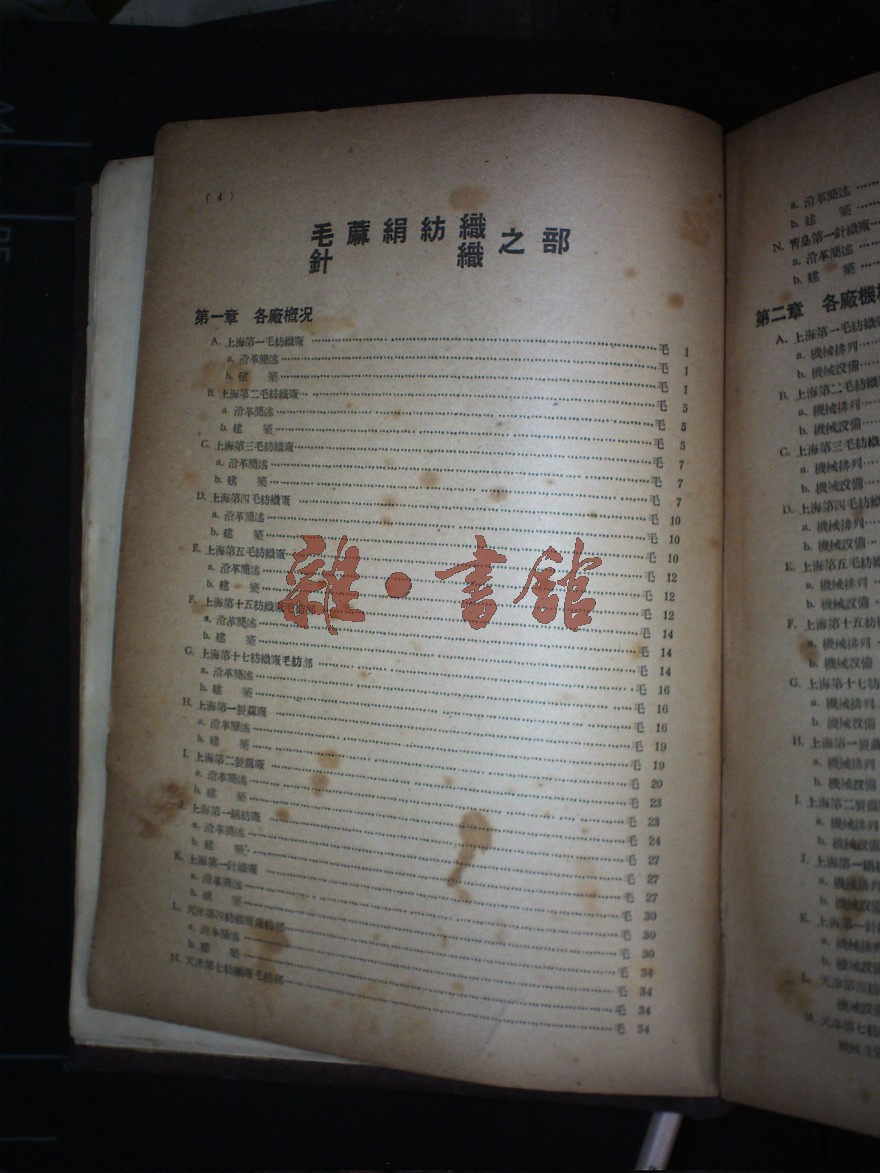 (4)
毛蔴絹紡織之部
針織
第一章 各廠概况
A. 上海第一毛紡織廠 ……毛 1
a. 沿革簡述……毛 1
b. 建 築……毛 1
B. 上海第二毛紡織廠……毛 5
a. 沿革簡述……毛 5
b. 建 築……毛 5
C. 上海第三毛紡織廠……毛 7
a. 沿革簡述……毛 7
b. 建 築……毛 7
D. 上海第四毛紡織廠……毛 10
a. 沿革簡述……毛 10
b. 建 築……毛 10
E. 上海第五毛紡織廠……毛 12
a. 沿革簡述……毛 12
b. 建 築……毛 12
F. 上海第十五紡織廠毛紡部……毛 14
a. 沿革簡述……毛 14
b. 建 築……毛 14
G. 上海第十七紡織廠毛紡部……毛 16
a. 沿革簡述……毛 16
b. 建 築……毛 16
H. 上海第一製蔴廠……毛 19
a. 沿革簡述……毛 19
b. 建 築……毛 20
I. 上海第二製蔴廠……毛 23
a. 沿革簡述……毛 23
b. 建 築……毛 24
J. 上海第一絹紡廠……毛 27
a. 沿革簡述……毛 27
b. 建 築……毛 27
K. 上海第一針織廠……毛 30
a. 沿革簡述……毛 30
b. 建 築……毛 30
L. 天津第四紡織廠蔴紡部……毛 34
a. 沿革簡述……毛 34
b. 建 築……毛 34
M. 天津第七紡織廠毛紡部……毛 34
雜·書館
a. 沿革簡述……
b. 建 築……
N. 青島第一針織廠……
a. 沿革簡述……
b. 建 築……
第二章 各廠機
A. 上海第一毛紡織
a. 機械排列……
b. 機械設備……
B. 上海第二毛紡織
a. 機械排列……
b. 機械設備……
C. 上海第三毛紡織
a. 機械排列……
b. 機械設備……
D. 上海第四毛紡織
a. 機械排列……
b. 機械設備……
E. 上海第五毛紡
a. 機械排列
b. 機械設備
F. 上海第十五紡
a. 機械排列
b. 機械設備
G. 上海第十七紡
a. 機械排列
b. 機械設備
H. 上海第一製蔴
a. 機械排列
b. 機械設備
I. 上海第二製蔴
a. 機械排列
b. 機械設備
J. 上海第一絹
a. 機械排列
b. 機械設備
K. 上海第一針
a. 機械排列
b. 機械設備
L. 天津第四紡
機械設備
M. 天津第七紡
機械